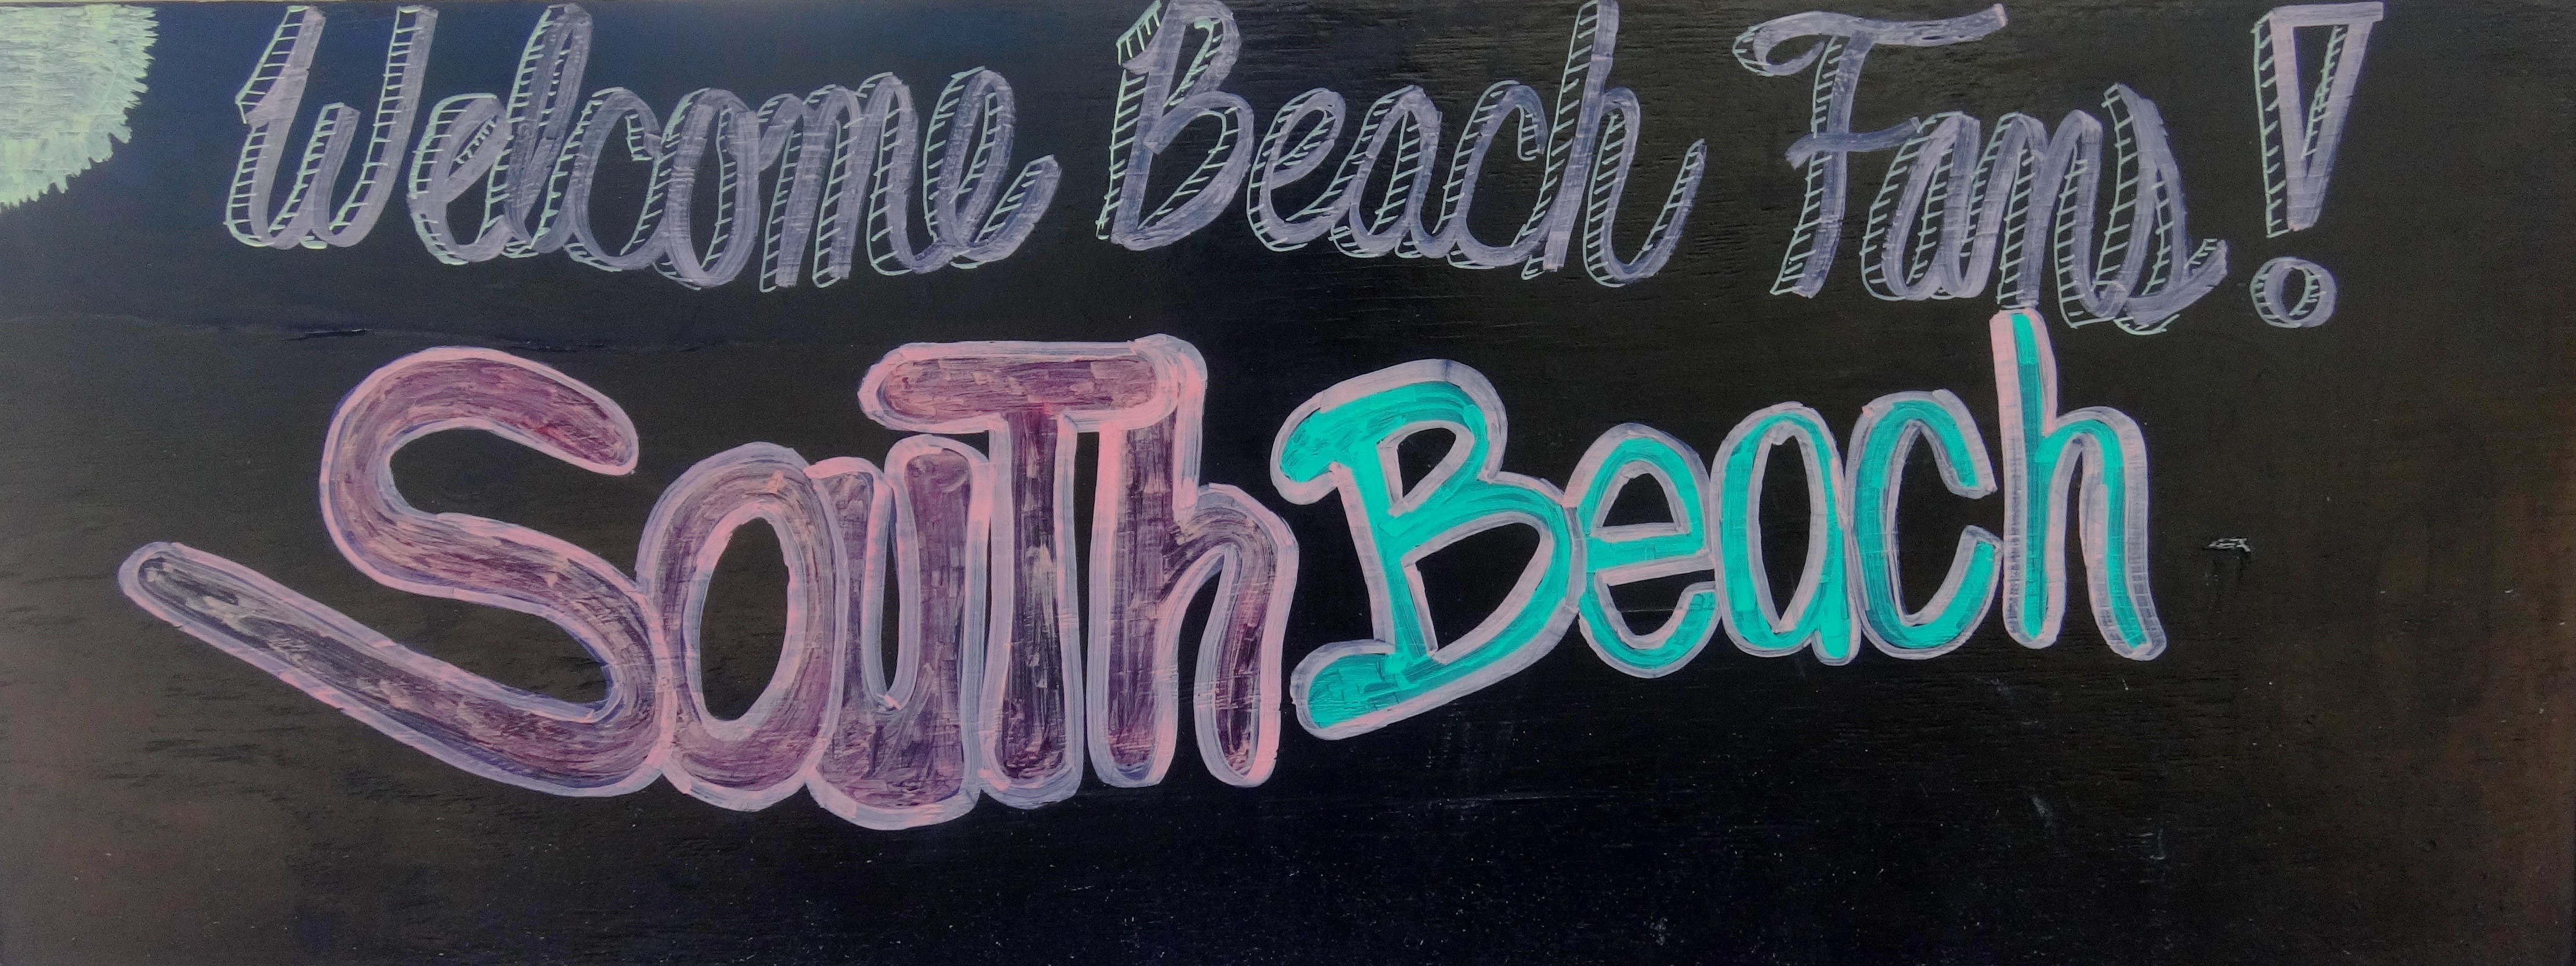 Welcome Beach Fans!
South Beach